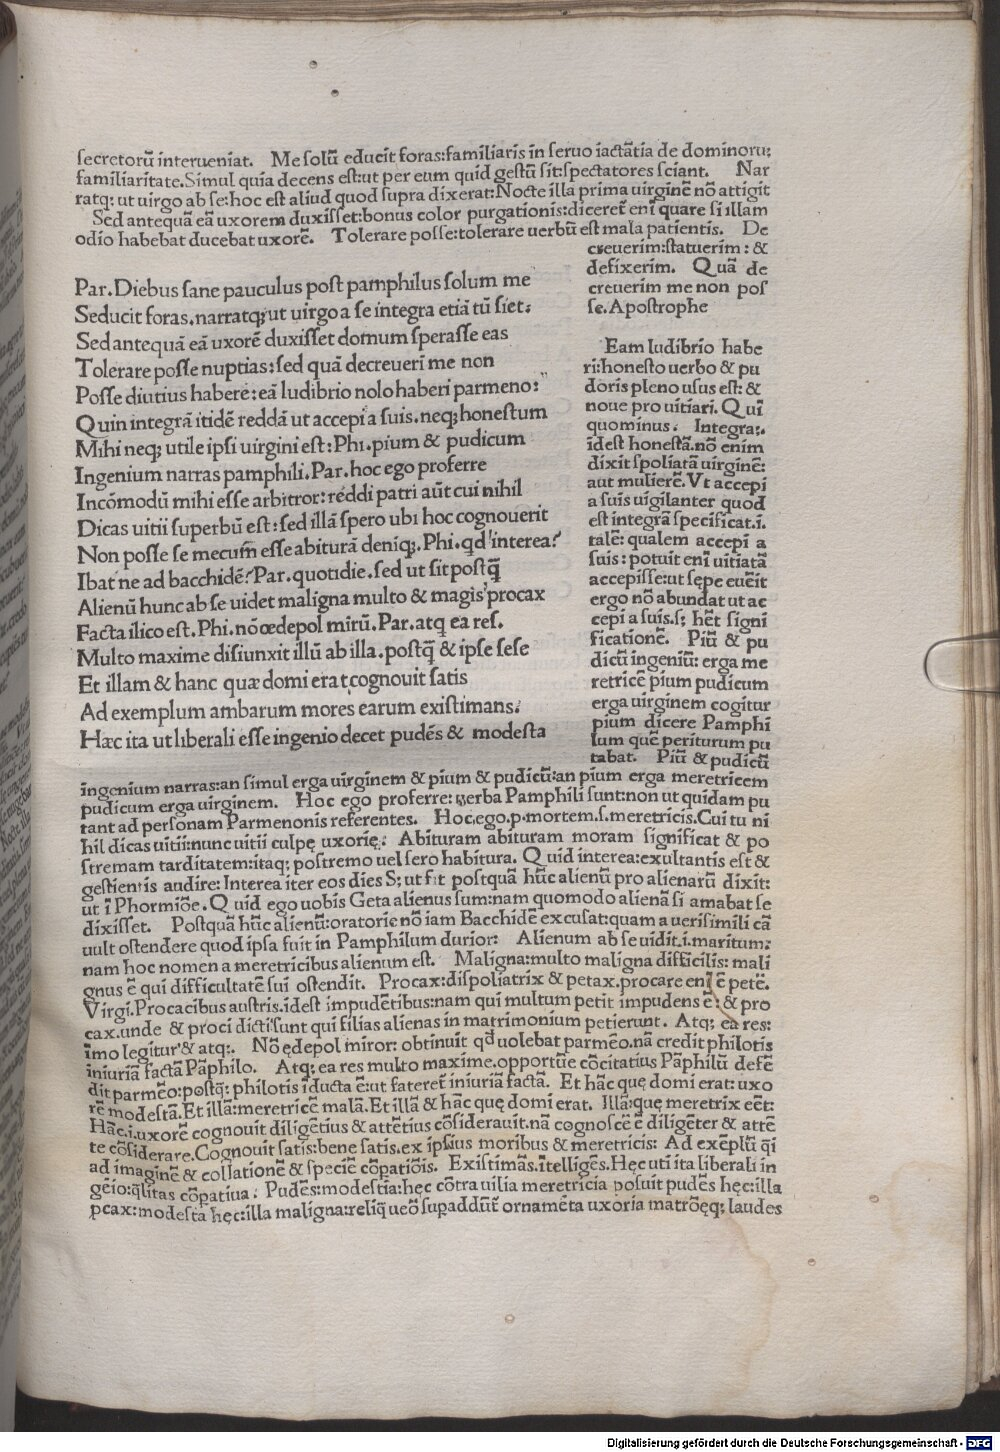 ſecretorū interueniat. Me ſolū educit foras:familiaris in ſeruo iactātia de dominoruꝫ
familiaritate.Simul quia decens eſt:ut per eum quid geſtū ſit:ſpectatores ſciant. Nar
ratqꝫ ut uirgo ab ſe:hoc eſt aliud quod ſupra dixerat:Nocte illa prima uirginē nō attigit
Sed antequā eā uxorem duxiſſet:bonus color purgationis:diceret̄ enī quare ſi illam
odio habebat ducebat uxorē. Tolerare poſſe:tolerare uerbū eſt mala patientis. De
creuerim:ſtatuerim: &
defixerim. Quā de
creuerim me non poſ
ſe.Apoſtrophe
Par.Diebus ſane pauculus poſt pamphilus ſolum me
Seducit foras.narratqꝫut uirgo a ſe integra etiā tū ſiet:
Sed antequā eā uxorē duxiſſet domum ſperaſſe eas
Tolerare poſſe nuptias:ſed quā decreueri me non
Poſſe diutius habere:eā ludibrio nolo haberi parmeno:
Quin integrā itidē reddā ut accepi a ſuis.neqꝫ honeſtum
Mihi neqꝫ utile ipſi uirgini eſt:Phi.pium & pudicum
Ingenium narras pamphili.Par.hoc ego proferre
Incōmodū mihi eſſe arbitror:reddi patri aūt cui nihil
Dicas uitii ſuperbū eſt:ſed illā ſpero ubi hoc cognouerit
Non poſſe ſe mecum eſſe abiturā deniqꝫ.Phi.qd interea?
Ibat ne ad bacchidē?Par.quotidie.ſed ut ſit poſtq̄
Alienū hunc ab ſe uidet maligna multo & magis procax
Facta ilico eſt.Phi.nō œdepol mirū.Par.atq ea reſ.
Multo maxime diſiunxit illū ab illa.poſtq̄ & ipſe ſeſe
Et illam & hanc quæ domi erat cognouit ſatis
Ad exemplum ambarum mores earum exiſtimans:
Hæc ita ut liberali eſſe ingenio decet pudēs & modeſta
Eam ludibrio habe
ri:honeſto uerbo & pu
doris pleno uſus eſt: &
noue pro uitiari. Qui
quominus. Integra:.
ideſt honeſtā.nō enim
dixit ſpoliatā uirginē:
aut mulierē.Vt accepi
a ſuis uigilanter quod
eſt integrā ſpecificat.i.
talē: qualem accepi a
ſuis: potuit enī uitiatā
accepiſſe:ut ſępe euēit
ergo nō abundat ut ac
cepi a ſuis.ſꝫ hēt ſigni
ficationē. Piū & pu
dicū ingeniū: erga me
retricē pium pudicum
erga uirginem cogitur
pium dicere Pamphi
lum quē periturum pu
tabat. Piū & pudicū
ingenium narras:an ſimul erga uirginem & pium & pudicū:an pium erga meretricem
pudicum erga uirginem. Hoc ego proferre: uerba Pamphili ſunt:non ut quidam pu
tant ad perſonam Parmenonis referentes. Hoc,ego.p.mortem.ſ.meretricis.Cui tu ni
hil dicas uitii:nunc uitii culpę uxorię: Abituram abituram moram ſignificat & po
ſtremam tarditatem:itaqꝫ poſtremo uel ſero habitura. Quid interea:exultantis eſt &
geſtientis audire:Interea iter eos dies Sꝫ ut fit poſtquā hūc alienū pro alienarū dixit:
ut ī Phormiōe.Quid ego uobis Geta alienus ſum:nam quomodo alienā ſi amabat ſe
dixiſſet. Poſtquā hūc alienū:oratorie nō iam Bacchidē excuſat:quam a ueriſimili cā
uult oſtendere quod ipſa fuit in Pamphilum durior: Alienum ab ſe uidit.i.maritum:
nam hoc nomen a meretricibus alienum eſt. Maligna:multo maligna difficilis: mali
gnus ē qui difficultatē ſui oſtendit. Procax:diſpoliatrix & petax.procare enī ē petē.
Virgi.Procacibus auſtris.ideſt impudētibus:nam qui multum petit impudens ē: & pro
cax.unde & proci dicti ſunt qui filias alienas in matrimonium petierunt. Atqꝫ ea res:
īmo legitur & atqꝫ. Nō ędepol miror: obtinuit qd uolebat parmēo.nā credit philotis
iniuriā factā Pāphilo. Atqꝫ ea res multo maxime.opportūe cōcitatius Pāphilū defē
dit parmēo:poſtqꝫ philotis īducta ē:ut fateret̄ iniuriā factā. Et hāc quę domi erat: uxo
rē modeſtā.Et illā:meretricē malā.Et illā & hāc quę domi erat. Illā:quę meretrix eēt:
Hāc.i.uxorē cognouit diligētius & attētius cōſiderauit.nā cognoſcē ē diligēter & attē
te cōſiderare.Cognouit ſatis:bene ſatis.ex ipſius moribus & meretricis: Ad exēplū qi
ad imaginē & collationē & ſpeciē cōpatiōis. Exiſtimās.ītelligēs.Hęc uti ita liberali in
gēio:qlitas cōpatiua: Pudēs:modeſtia:hęc cōtra uilia meretricia poſuit pudēs hęc:illa
pcax:modeſta hęc:illa maligna:reliq ueō ſupaddūt ornamēta uxoria matrōęqꝫ laudes
Digitalisierung gefördert durch die Deutsche Forschungsgemeinschaft - DFG